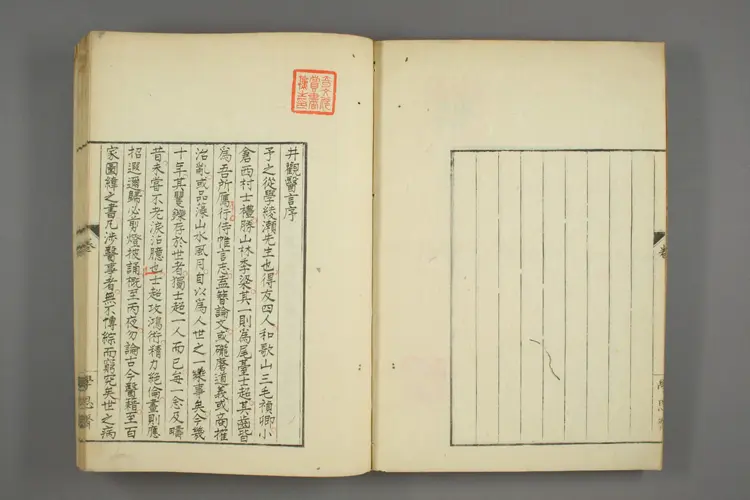 井觀醫言序
予之從學綾瀨先生也得友四人和歌山三毛禎卿小
倉西村士禮勝山林季梁其一則為尾臺士超其齒皆
為吾所屬行侍帷言志盍簪論文或礲磨道義或商榷
治亂或品藻山水風月自以為人世之一樂事矣今幾
十年其蹔躁存於世者獨士超一人而已每一念及疇
昔未嘗不老淚沾臆也士超攻鴻術精力絕倫晝則應
招迢邐歸必剪燈披誦概至丙夜勿論古今醫籍至百
家圖緯之書凡涉醫事者無不博綜而窮究矣世之病